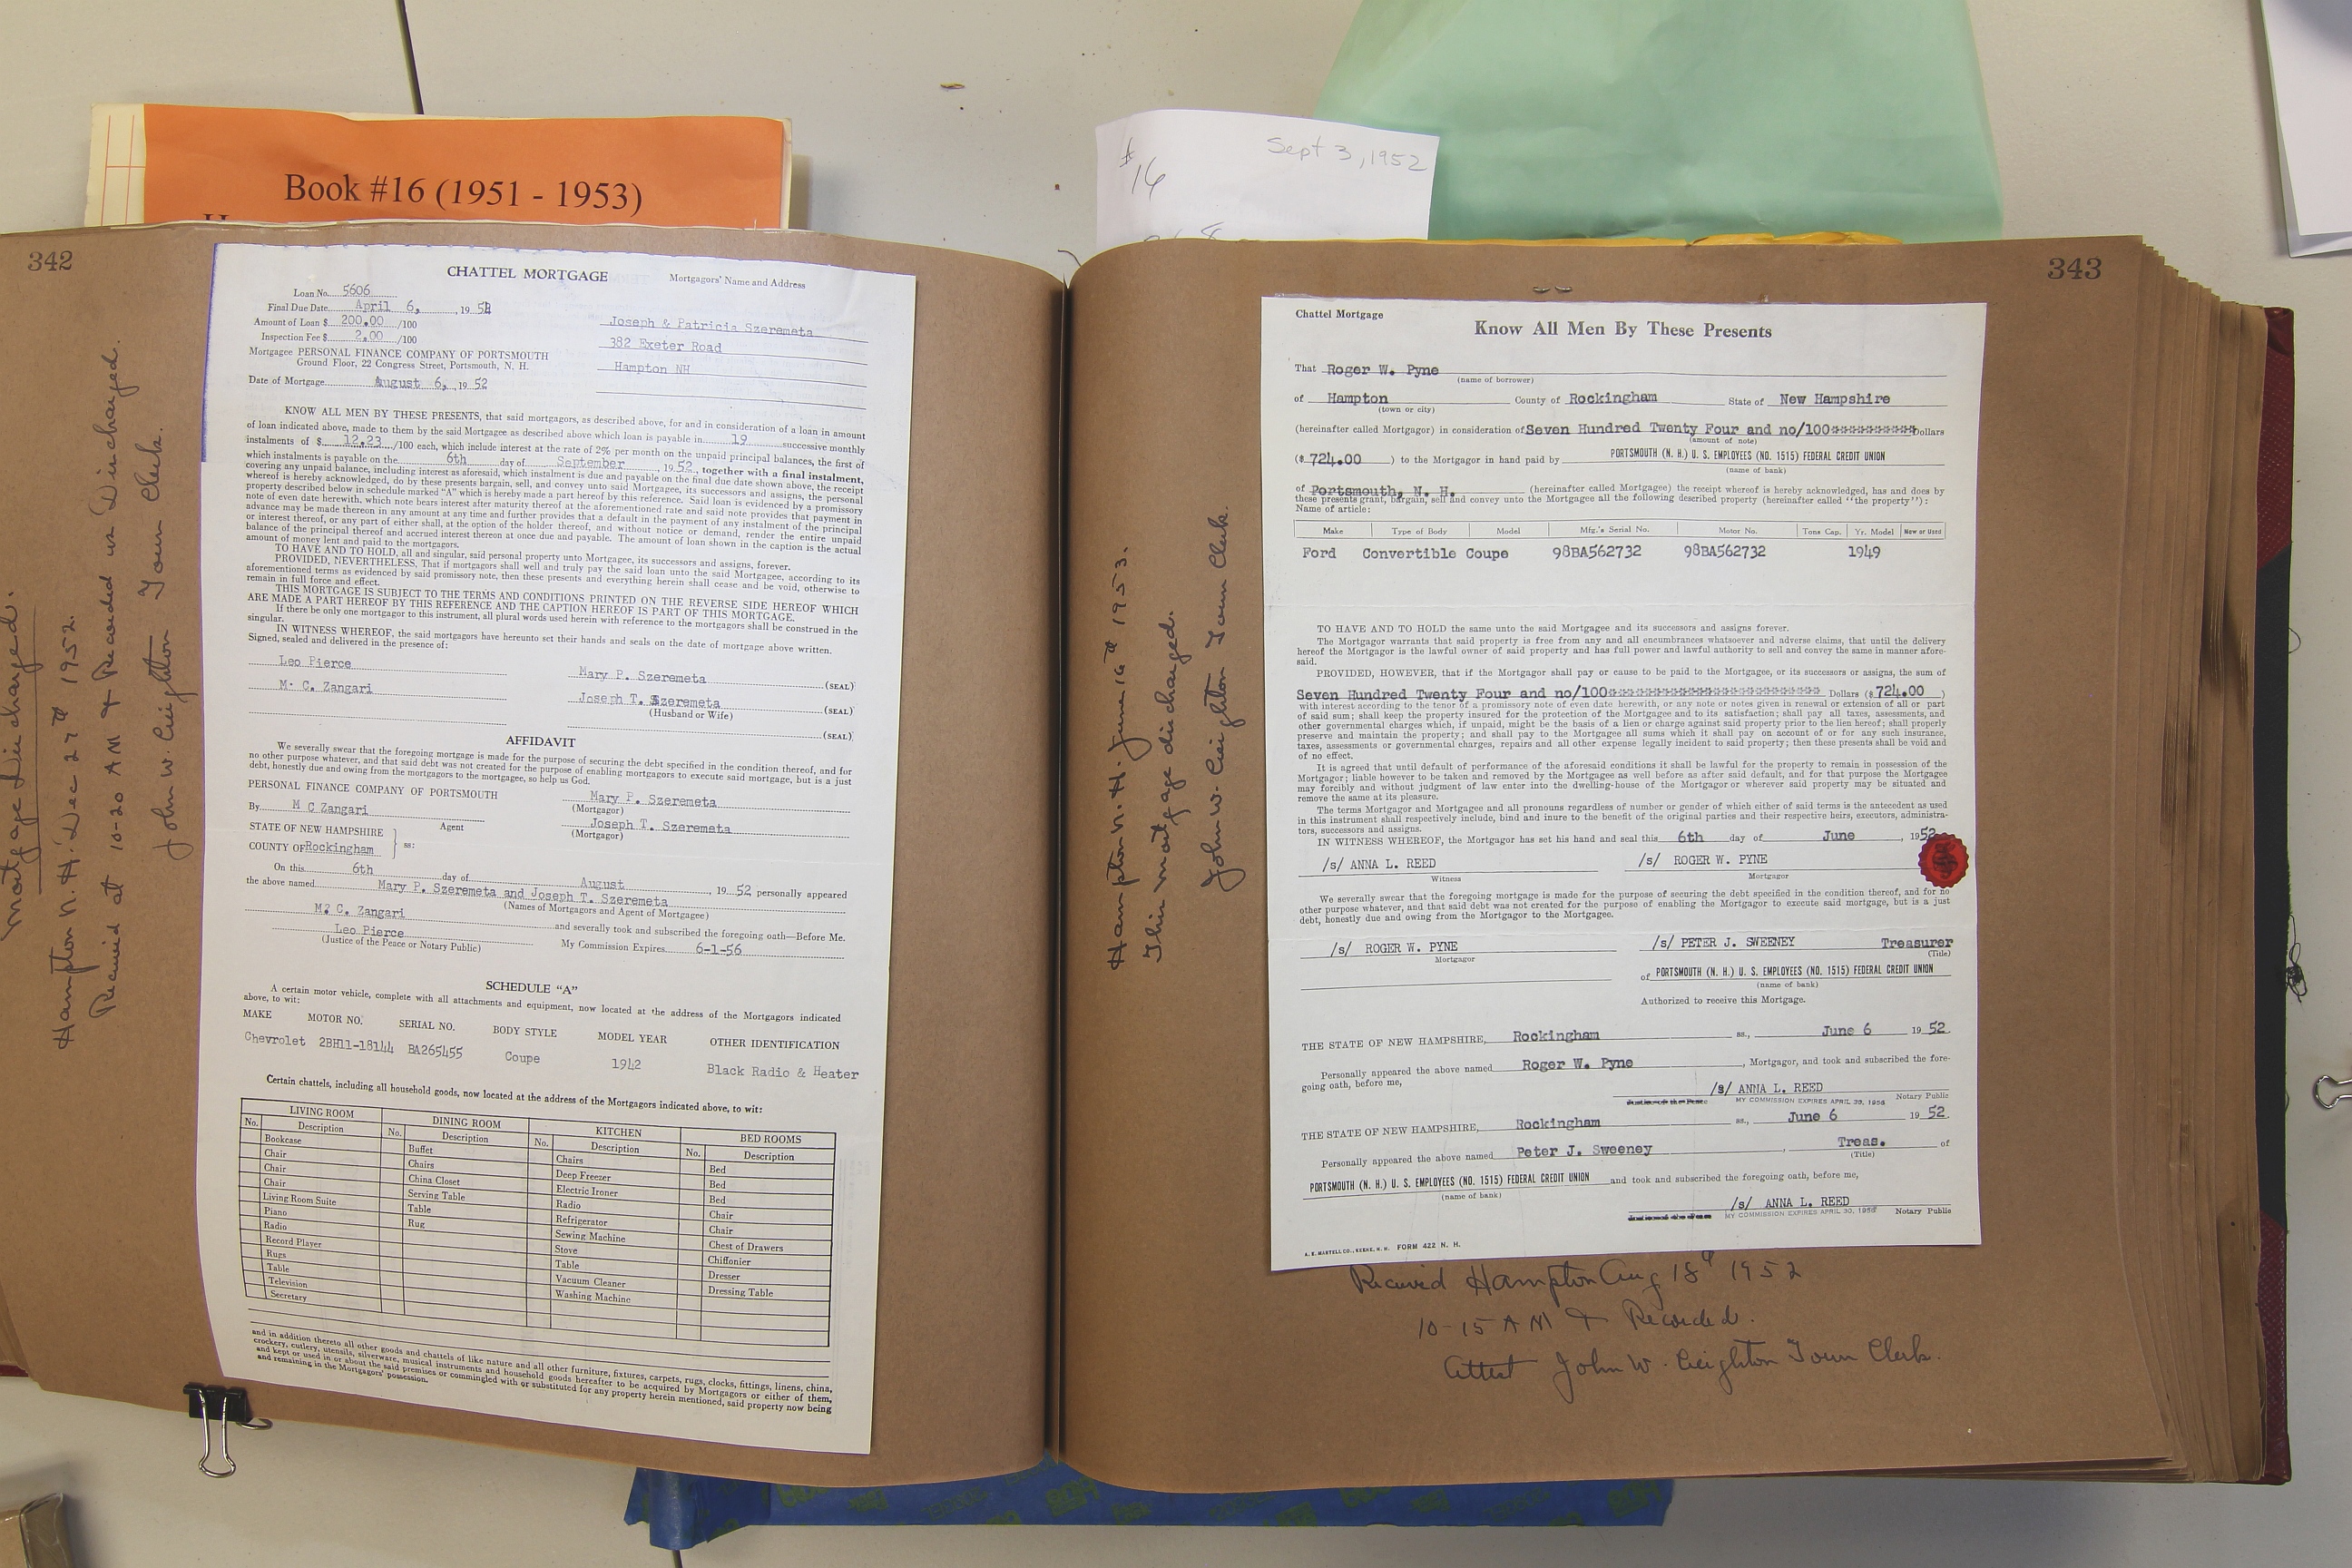 Book #16 (1951 - 1953)
# 16
Sept 3, 1952
342
Mortgage Discharged.
Hampton N. H. Dec 27th 1952.
Received at 10-20 AM & Recorded as Discharged.
John W. Creighton Town Clerk.
CHATTEL MORTGAGE
Mortgagors' Name and Address
Loan No. 5606
Final Due Date April 6, , 19 54
Amount of Loan $ 200.00 /100
Inspection Fee $ 2.00 /100
Mortgagee PERSONAL FINANCE COMPANY OF PORTSMOUTH
Ground Floor, 22 Congress Street, Portsmouth, N. H.
Date of Mortgage August 6, , 19 52
Joseph & Patricia Szeremeta
382 Exeter Road
Hampton NH
KNOW ALL MEN BY THESE PRESENTS, that said mortgagors, as described above, for and in consideration of a loan in amount
of loan indicated above, made to them by the said Mortgagee as described above which loan is payable in 19 successive monthly
instalments of $ 12.23 /100 each, which include interest at the rate of 2% per month on the unpaid principal balances, the first of
which instalments is payable on the 6th day of September , 19 52, together with a final instalment,
covering any unpaid balance, including interest as aforesaid, which instalment is due and payable on the final due date shown above, the receipt
whereof is hereby acknowledged, do by these presents bargain, sell, and convey unto said Mortgagee, its successors and assigns, the personal
property described below in schedule marked "A" which is hereby made a part hereof by this reference. Said loan is evidenced by a promissory
note of even date herewith, which note bears interest after maturity thereof at the aforementioned rate and said note provides that payment in
advance may be made thereon in any amount at any time and further provides that a default in the payment of any instalment of the principal
or interest thereof, or any part of either shall, at the option of the holder thereof, and without notice or demand, render the entire unpaid
balance of the principal thereof and accrued interest thereon at once due and payable. The amount of loan shown in the caption is the actual
amount of money lent and paid to the mortgagors.
TO HAVE AND TO HOLD, all and singular, said personal property unto Mortgagee, its successors and assigns, forever.
PROVIDED, NEVERTHELESS, That if mortgagors shall well and truly pay the said loan unto the said Mortgagee, according to its
aforementioned terms as evidenced by said promissory note, then these presents and everything herein shall cease and be void, otherwise to
remain in full force and effect.
THIS MORTGAGE IS SUBJECT TO THE TERMS AND CONDITIONS PRINTED ON THE REVERSE SIDE HEREOF WHICH
ARE MADE A PART HEREOF BY THIS REFERENCE AND THE CAPTION HEREOF IS PART OF THIS MORTGAGE.
If there be only one mortgagor to this instrument, all plural words used herein with reference to the mortgagors shall be construed in the
singular.
IN WITNESS WHEREOF, the said mortgagors have hereunto set their hands and seals on the date of mortgage above written.
Signed, sealed and delivered in the presence of:
Leo Pierce
Mary P. Szeremeta (SEAL)
M. C. Zangari
Joseph T. Szeremeta (SEAL)
(Husband or Wife)
(SEAL)
AFFIDAVIT
We severally swear that the foregoing mortgage is made for the purpose of securing the debt specified in the condition thereof, and for
no other purpose whatever, and that said debt was not created for the purpose of enabling mortgagors to execute said mortgage, but is a just
debt, honestly due and owing from the mortgagors to the mortgagee, so help us God.
PERSONAL FINANCE COMPANY OF PORTSMOUTH
Mary P. Szeremeta
(Mortgagor)
By M C Zangari
Agent
Joseph T. Szeremeta
(Mortgagor)
STATE OF NEW HAMPSHIRE
COUNTY OF Rockingham
ss:
On this 6th day of August , 19 52 personally appeared
the above named Mary P. Szeremeta and Joseph T. Szeremeta
(Names of Mortgagors and Agent of Mortgagee)
M. C. Zangari and severally took and subscribed the foregoing oath—Before Me.
Leo Pierce
(Justice of the Peace or Notary Public)
My Commission Expires 6-1-56
SCHEDULE "A"
A certain motor vehicle, complete with all attachments and equipment, now located at the address of the Mortgagors indicated
above, to wit:
MAKE MOTOR NO. SERIAL NO. BODY STYLE MODEL YEAR OTHER IDENTIFICATION
Chevrolet 2BH11-18144 BA265455 Coupe 1942 Black Radio & Heater
Certain chattels, including all household goods, now located at the address of the Mortgagors indicated above, to wit:
LIVING ROOM DINING ROOM KITCHEN BED ROOMS
No. Description No. Description No. Description No. Description
Bookcase Buffet Chairs Bed
Chair Chairs Deep Freezer Bed
Chair China Closet Electric Ironer Bed
Chair Serving Table Radio Chair
Living Room Suite Table Refrigerator Chair
Piano Rug Sewing Machine Chest of Drawers
Radio Stove Chiffonier
Record Player Table Dresser
Rugs Vacuum Cleaner Dressing Table
Table Washing Machine
Television
Secretary
and in addition thereto all other goods and chattels of like nature and all other furniture, fixtures, carpets, rugs, clocks, fittings, linens, china,
crockery, cutlery, utensils, silverware, musical instruments and household goods hereafter to be acquired by Mortgagors or either of them,
and kept or used in or about the said premises or commingled with or substituted for any property herein mentioned, said property now being
and remaining in the Mortgagors' possession.
343
Hampton N. H. June 16th 1953.
This mortgage discharged.
John W. Creighton Town Clerk.
Chattel Mortgage
Know All Men By These Presents
That Roger W. Pyne
(name of borrower)
of Hampton County of Rockingham State of New Hampshire
(town or city)
(hereinafter called Mortgagor) in consideration of Seven Hundred Twenty Four and no/100********** Dollars
(amount of note)
($ 724.00 ) to the Mortgagor in hand paid by PORTSMOUTH (N. H.) U. S. EMPLOYEES (NO. 1515) FEDERAL CREDIT UNION
(name of bank)
of Portsmouth, N. H. (hereinafter called Mortgagee) the receipt whereof is hereby acknowledged, has and does by
these presents grant, bargain, sell and convey unto the Mortgagee all the following described property (hereinafter called "the property"):
Name of article:
Make Type of Body Model Mfg.'s Serial No. Motor No. Tons Cap. Yr. Model New or Used
Ford Convertible Coupe 98BA562732 98BA562732 1949
TO HAVE AND TO HOLD the same unto the said Mortgagee and its successors and assigns forever.
The Mortgagor warrants that said property is free from any and all encumbrances whatsoever and adverse claims, that until the delivery
hereof the Mortgagor is the lawful owner of said property and has full power and lawful authority to sell and convey the same in manner afore-
said.
PROVIDED, HOWEVER, that if the Mortgagor shall pay or cause to be paid to the Mortgagee, or its successors or assigns, the sum of
Seven Hundred Twenty Four and no/100************************* Dollars ($ 724.00 )
with interest according to the tenor of a promissory note of even date herewith, or any note or notes given in renewal or extension of all or part
of said sum; shall keep the property insured for the protection of the Mortgagee and to its satisfaction; shall pay all taxes, assessments, and
other governmental charges which, if unpaid, might be the basis of a lien or charge against said property prior to the lien hereof; shall properly
preserve and maintain the property; and shall pay to the Mortgagee all sums which it shall pay on account of or for any such insurance,
taxes, assessments or governmental charges, repairs and all other expense legally incident to said property; then these presents shall be void and
of no effect.
It is agreed that until default of performance of the aforesaid conditions it shall be lawful for the property to remain in possession of the
Mortgagor; liable however to be taken and removed by the Mortgagee as well before as after said default, and for that purpose the Mortgagee
may forcibly and without judgment of law enter into the dwelling-house of the Mortgagor or wherever said property may be situated and
remove the same at its pleasure.
The terms Mortgagor and Mortgagee and all pronouns regardless of number or gender of which either of said terms is the antecedent as used
in this instrument shall respectively include, bind and inure to the benefit of the original parties and their respective heirs, executors, administra-
tors, successors and assigns.
IN WITNESS WHEREOF, the Mortgagor has set his hand and seal this 6th day of June , 1952
/s/ ANNA L. REED /s/ ROGER W. PYNE
Witness Mortgagor
We severally swear that the foregoing mortgage is made for the purpose of securing the debt specified in the condition thereof, and for no
other purpose whatever, and that said debt was not created for the purpose of enabling the Mortgagor to execute said mortgage, but is a just
debt, honestly due and owing from the Mortgagor to the Mortgagee.
/s/ ROGER W. PYNE /s/ PETER J. SWEENEY Treasurer
Mortgagor (Title)
of PORTSMOUTH (N. H.) U. S. EMPLOYEES (NO. 1515) FEDERAL CREDIT UNION
(name of bank)
Authorized to receive this Mortgage.
THE STATE OF NEW HAMPSHIRE, Rockingham ss., June 6 19 52.
Personally appeared the above named Roger W. Pyne , Mortgagor, and took and subscribed the fore-
going oath, before me,
/s/ ANNA L. REED
Justice of the Peace MY COMMISSION EXPIRES APRIL 30, 1956 Notary Public
THE STATE OF NEW HAMPSHIRE, Rockingham ss., June 6 19 52.
Personally appeared the above named Peter J. Sweeney , Treas. of
(Title)
PORTSMOUTH (N. H.) U. S. EMPLOYEES (NO. 1515) FEDERAL CREDIT UNION and took and subscribed the foregoing oath, before me,
(name of bank)
/s/ ANNA L. REED
Justice of the Peace MY COMMISSION EXPIRES APRIL 30, 1956 Notary Public
A. E. MARTELL CO., KEENE, N. H. FORM 422 N. H.
Received Hampton Aug 18th 1952
10-15 AM & Recorded.
Attest John W. Creighton Town Clerk.